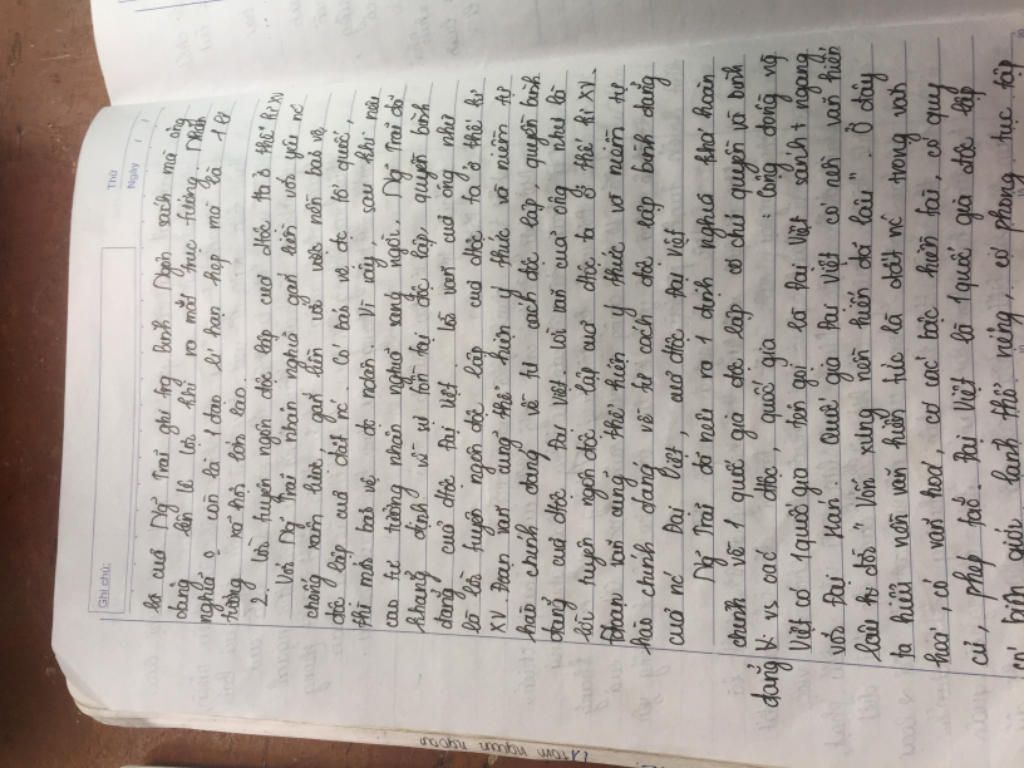 Thứ
Ngày
Ghi chú:
là của Ng Trãi ghi trg Bình Ngôn sách mà ông
dâng lên Lê Lợi khi ra mắt trực tướng Nhân
nghĩa ở còn là 1 đạo lí hạn hẹp mà là 1 lí
tưởng xã hội lớn lao.
2. Lời tuyên ngôn độc lập của dtộc ta ở thế kỉ XV
Với Ng Trãi nhân nghĩa gắn liền với yêu nc
chống xâm lược, gắn liền với việc nền bảo vệ
độc lập của đất nc. Có bảo vệ đc tổ quốc,
thì mới bảo vệ đc ndân. Vì vậy, sau khi nêu
cao tư tưởng nhân nghĩa sang ngời. Ng Trãi đã
khẳng định về sự tồn tại độc lập, quyền bình
đẳng của dtộc Đại Việt. Lời văn của ông như
là lời tuyên ngôn độc lập của dtộc ta ở thế kỉ
XV. Đoạn văn cũng thể hiện ý thức và niềm tự
hào chính đáng về tư cách độc lập, quyền bình
đẳng của dtộc Đại Việt. Lời văn của ông như là
lời tuyên ngôn độc lập của dtộc ta ở thế kỉ XV.
Đoạn văn cũng thể hiện ý thức và niềm tự
hào chính đáng về tư cách độc lập bình đẳng
của nc Đại Việt, của dtộc Đại Việt
Ng Trãi đã nêu ra 1 định nghĩa khá hoàn
chỉnh về 1 quốc gia độc lập có chủ quyền và bình
đẳng vs các dtộc, quốc gia : Cùng dòng vs
Việt có 1 quốc gia tên gọi là Đại Việt sánh + ngang
với Đại Hán Quốc gia Đại Việt có nền văn hiến
lâu đời " Vốn xưng nền hiến đã lâu". Ở đây
ta hiểu nền văn hiến tức là đất nc trong văn
hoá, có văn hoá, có các bậc hiền tài, có quy
củ, phép tắc. Đại Việt là 1 quốc gia độc lập
có biên giới lãnh thổ riêng, có phong tục tập